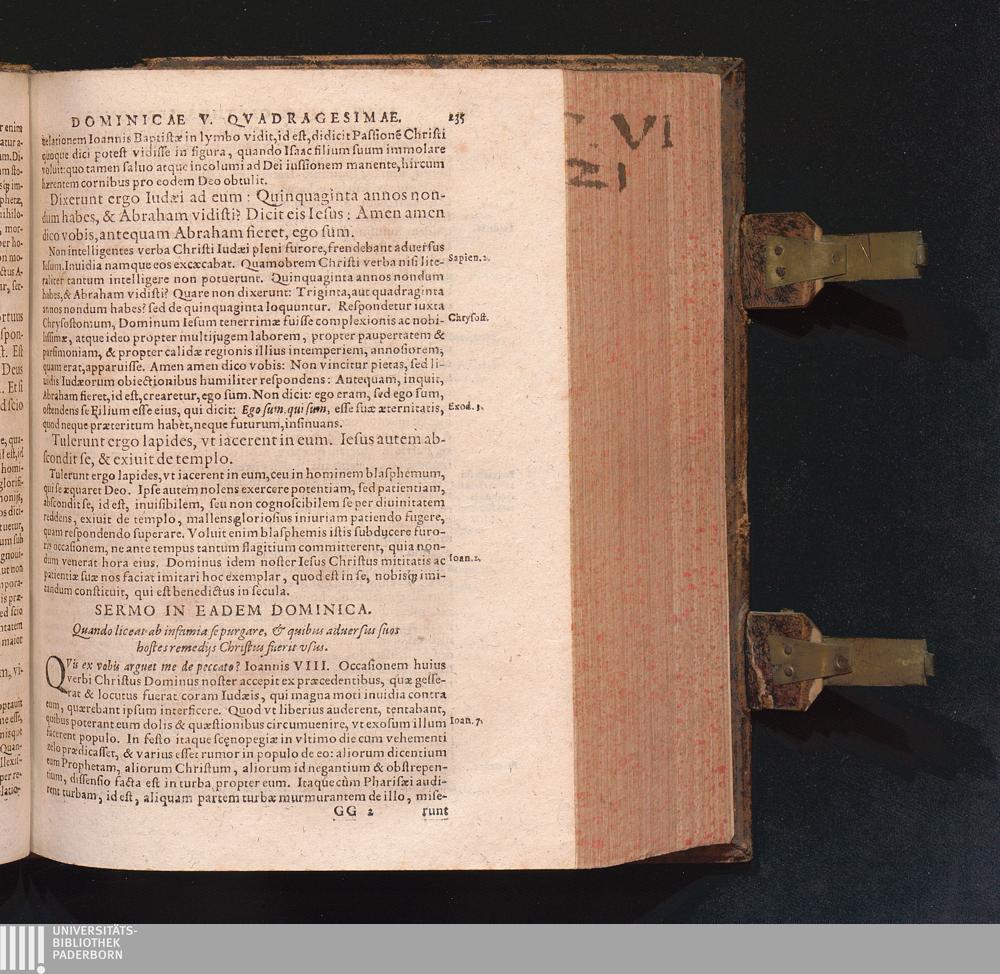 DOMINICAE V. QVADRAGESIMAE. 235
velationem Ioannis Baptistæ in lymbo vidit, id est, didicit Passionẽ Christi
quoque dici potest vidisse in figura, quando Isaac filium suum immolare
voluit: quo tamen saluo atque incolumi ad Dei iussionem manente, hircum
hærentem cornibus pro eodem Deo obtulit.
Dixerunt ergo Iudæi ad eum: Quinquaginta annos non-
dum habes, & Abraham vidisti? Dicit eis Iesus: Amen amen
dico vobis, antequam Abraham fieret, ego sum.
Non intelligentes verba Christi Iudæi pleni furore, frendebant aduersus
Iesum. Inuidia namque eos excæcabat. Quamobrem Christi verba nisi lite-
Sapien. 2.
raliter tantum intelligere non potuerunt. Quinquaginta annos nondum
habes, & Abraham vidisti? Quare non dixerunt: Triginta, aut quadraginta
annos nondum habes? sed de quinquaginta loquuntur. Respondetur iuxta
Chrysostomum, Dominum Iesum tenerrimæ fuisse complexionis ac nobi-
Chrysost.
lissimæ, atque ideo propter multijugem laborem, propter paupertatem &
parsimoniam, & propter calidæ regionis illius intemperiem, annosiorem,
quam erat, apparuisse. Amen amen dico vobis: Non vincitur pietas, sed li-
uidis Iudæorum obiectionibus humiliter respondens: Antequam, inquit,
Abraham fieret, id est, crearetur, ego sum. Non dicit: ego eram, sed ego sum,
ostendens se Filium esse eius, qui dicit: Ego sum, qui sum, esse suæ æternitatis,
Exod. 3.
quod neque præteritum habet, neque futurum, insinuans.
Tulerunt ergo lapides, vt iacerent in eum. Iesus autem ab-
scondit se, & exiuit de templo.
Tulerunt ergo lapides, vt iacerent in eum, ceu in hominem blasphemum,
qui se æquaret Deo. Ipse autem nolens exercere potentiam, sed patientiam,
abscondit se, id est, inuisibilem, seu non cognoscibilem se per diuinitatem
reddens, exiuit de templo, mallens gloriosius iniuriam patiendo fugere,
quam respondendo superare. Voluit enim blasphemis istis subducere furo-
ris occasionem, ne ante tempus tantum flagitium committerent, quia non-
dum venerat hora eius. Dominus idem noster Iesus Christus mititatis ac
Ioan. 2.
patientiæ suæ nos faciat imitari hoc exemplar, quod est in se, nobisq; imi-
tandum constituit, qui est benedictus in secula.
SERMO IN EADEM DOMINICA.
Quando liceat ab infamia se purgare, & quibus aduersus suos
hostes remedijs Christus fuerit vsus.
QVis ex vobis arguet me de peccato? Ioannis VIII. Occasionem huius
verbi Christus Dominus noster accepit ex præcedentibus, quæ gesse-
rat & locutus fuerat coram Iudæis, qui magna moti inuidia contra
eum, quærebant ipsum interficere. Quod vt liberius auderent, tentabant,
quibus poterant eum dolis & quæstionibus circumuenire, vt exosum illum
Ioan. 7.
facerent populo. In festo itaque scęnopegiæ in vltimo die cum vehementi
zelo prædicasset, & varius esset rumor in populo de eo: aliorum dicentium
eum Prophetam, aliorum Christum, aliorum id negantium & obstrepen-
tium, dissensio facta est in turba propter eum. Itaque cùm Pharisæi audi-
rent turbam, id est, aliquam partem turbæ murmurantem de illo, mise-
GG 2 runt
VI
UNIVERSITÄTS-
BIBLIOTHEK
PADERBORN